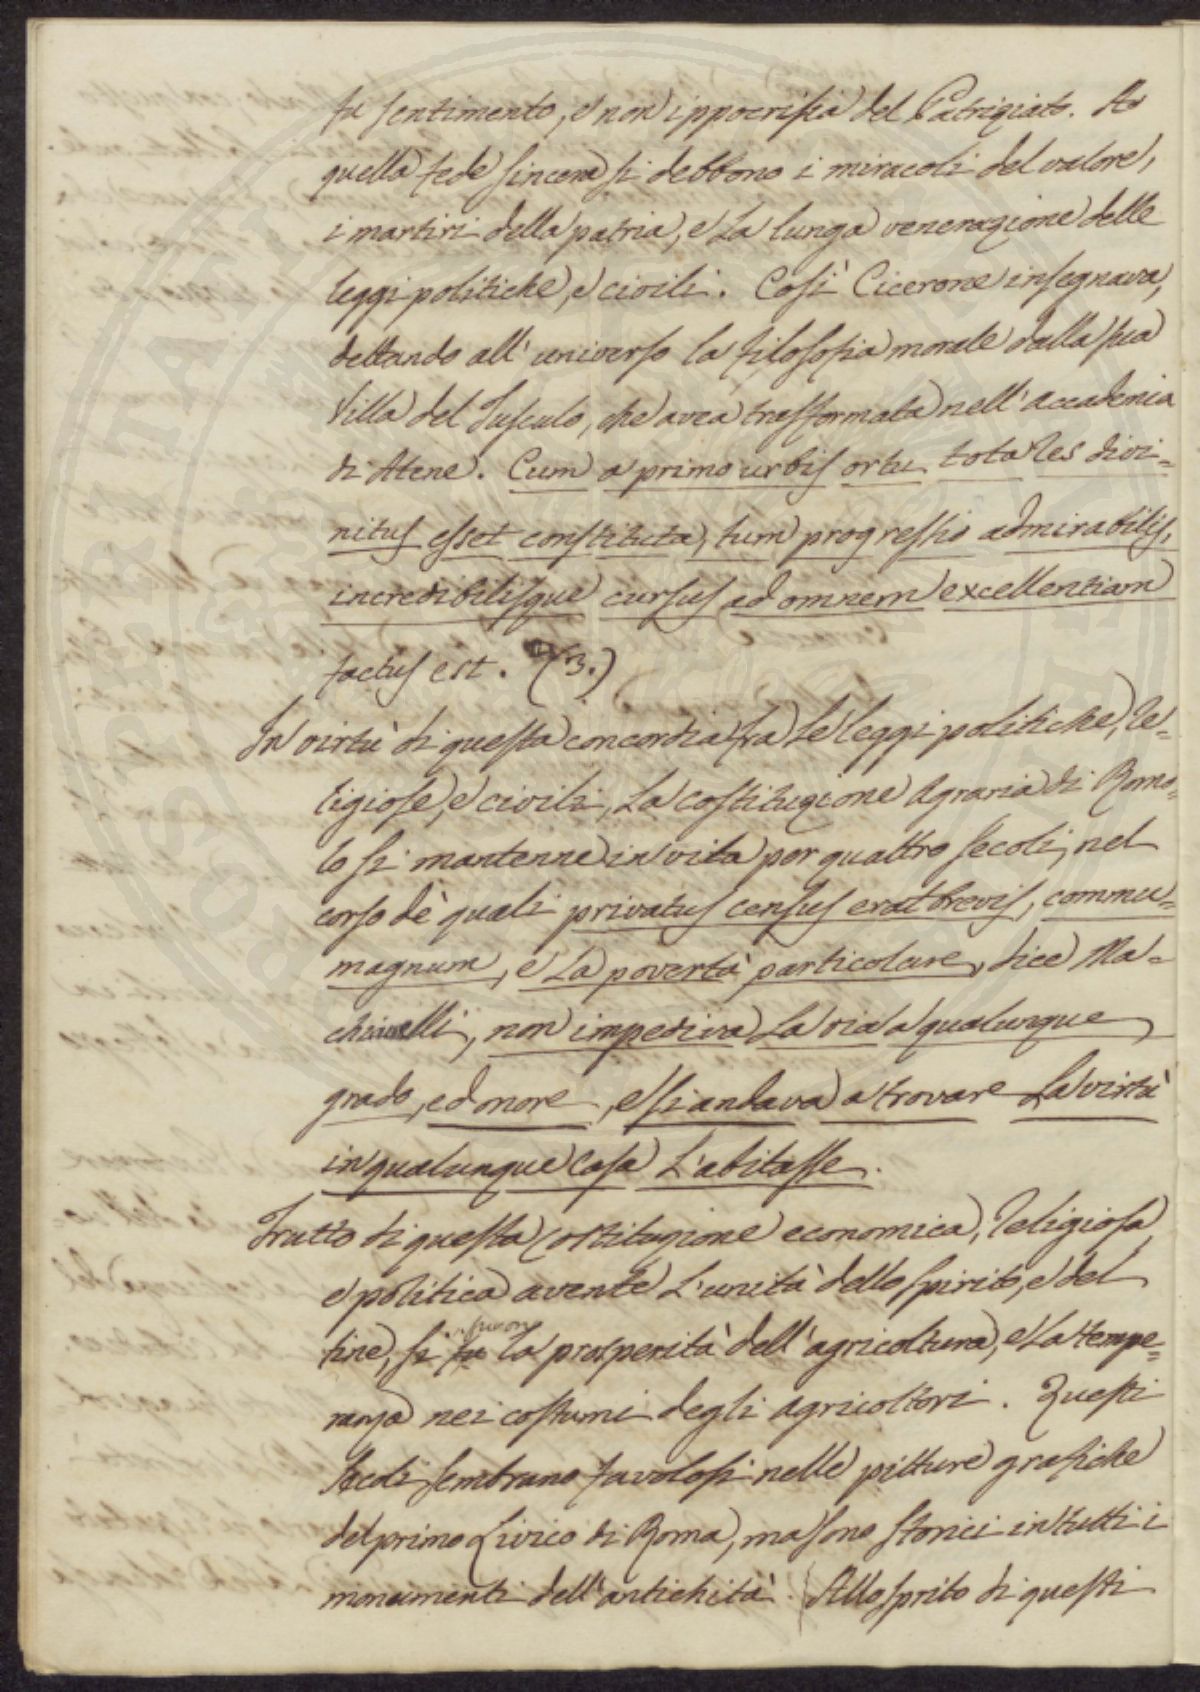 fu sentimento, e non ippocrisia del Patriziato. A
quella fede sincera si debbono i miracoli del valore,
i martiri della patria, e la lunga venerazione delle
leggi politiche, e civili. Così Cicerone insegnava,
dettando all'universo la filosofia morale dalla sua
Villa del Tusculo, che avea trasformata nell'accademia
di Atene. Cum a primo urbis ortu tota res divi=
nitus esset constituta, tum progressio admirabilis,
incredibilisque cursus ad omnem excellentiam
factus est. (3.)
In virtù di questa concordia fra le leggi politiche, re=
ligiose, e civili, la costituzione Agraria di Romo=
lo si mantenne in vita per quattro secoli, nel
corso dè quali privatus census erat brevis, commu=
magnum, e la povertà particolare, dice Ma=
chiavelli, non impediva la via a qualunque
grado, ed onore, e si andava a trovare la virtù
in qualunque casa l'abitasse.
Frutto di questa costituzione economica, religiosa,
e politica avente l'unità dello spirito, e del
furon
fine, si fu la prosperità dell'agricoltura, e la tempe=
ranza nei costumi degli agricoltori. Questi
secoli sembrano favolosi nelle pitture grafiche
del primo Livico di Roma, ma sono storici in tutti i
monumenti dell'antichità. Allo sprito di questi